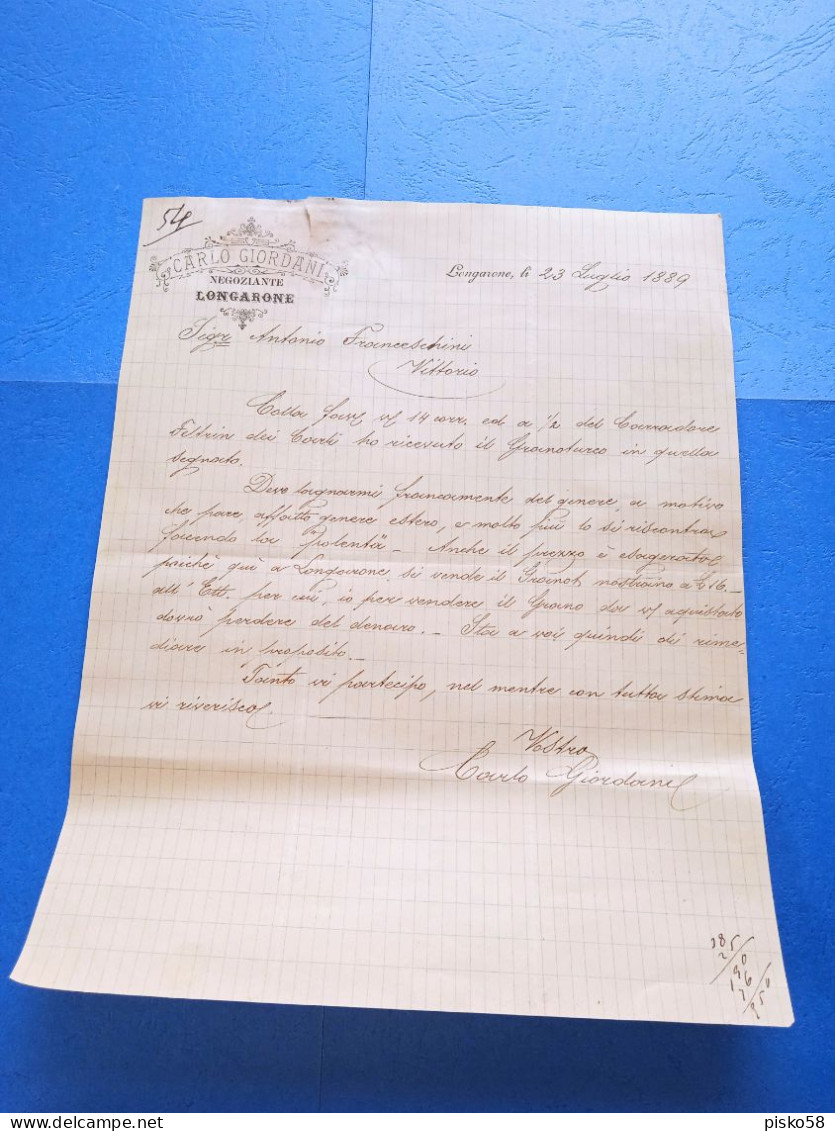 54
CARLO GIORDANI
NEGOZIANTE
LONGARONE
Longarone, li 23 Luglio 1889
Sigr Antonio Franceschini
Vittorio
Colla 14 corr. ed a ½ del Corradore
Feltrin dei Carli ho ricevuto il Granoturco in quella
segnato.
Devo lagnarmi francamente del genere, a motivo
che pare affatto genere estero, e molto più lo si riscontra
facendo la "polenta" - Anche il prezzo è esagerato
poichè quì a Longarone si vende il Granot nostrano a £ 16.-
all' Ett. per cui, io per vendere il Grano da aquistato
dovrò perdere del denaro. - Sta a voi quindi di rime-
diare in proposito. -
Tanto vi partecipo, nel mentre con tutta stima
vi riverisco
Vostro
Carlo Giordani
25
190
76
delcampe.net
pisko58